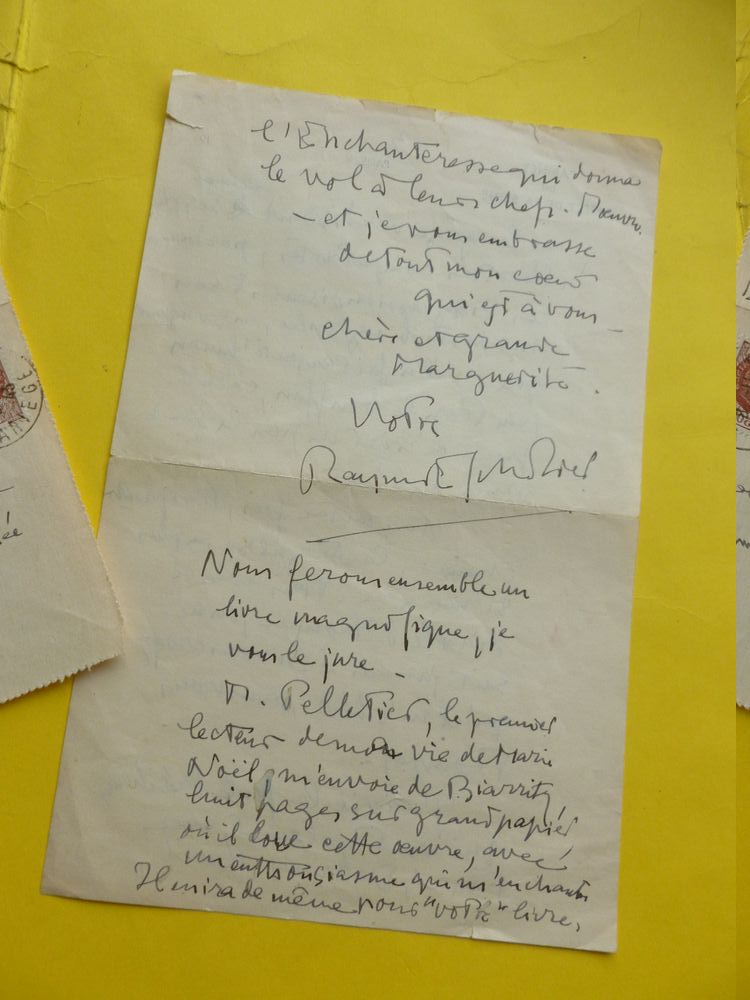 l'Enchanteresse qui donna
le vol à leurs chefs-d'œuvre.
— et je vous embrasse
de tout mon cœur
qui est à vous —
chère et grande
Marguerite.
Votre
Raymond
Nous ferons ensemble un
livre magnifique, je
vous le jure —
M. Pelletier, le premier
lecteur de mon vie de Marie
Noël, m'envoie de Biarritz,
huit pages sur grand papier
où il loue cette œuvre, avec
un enthousiasme qui m'enchante
Il en ira de même pour "votre" livre,
ANNÉE
ée